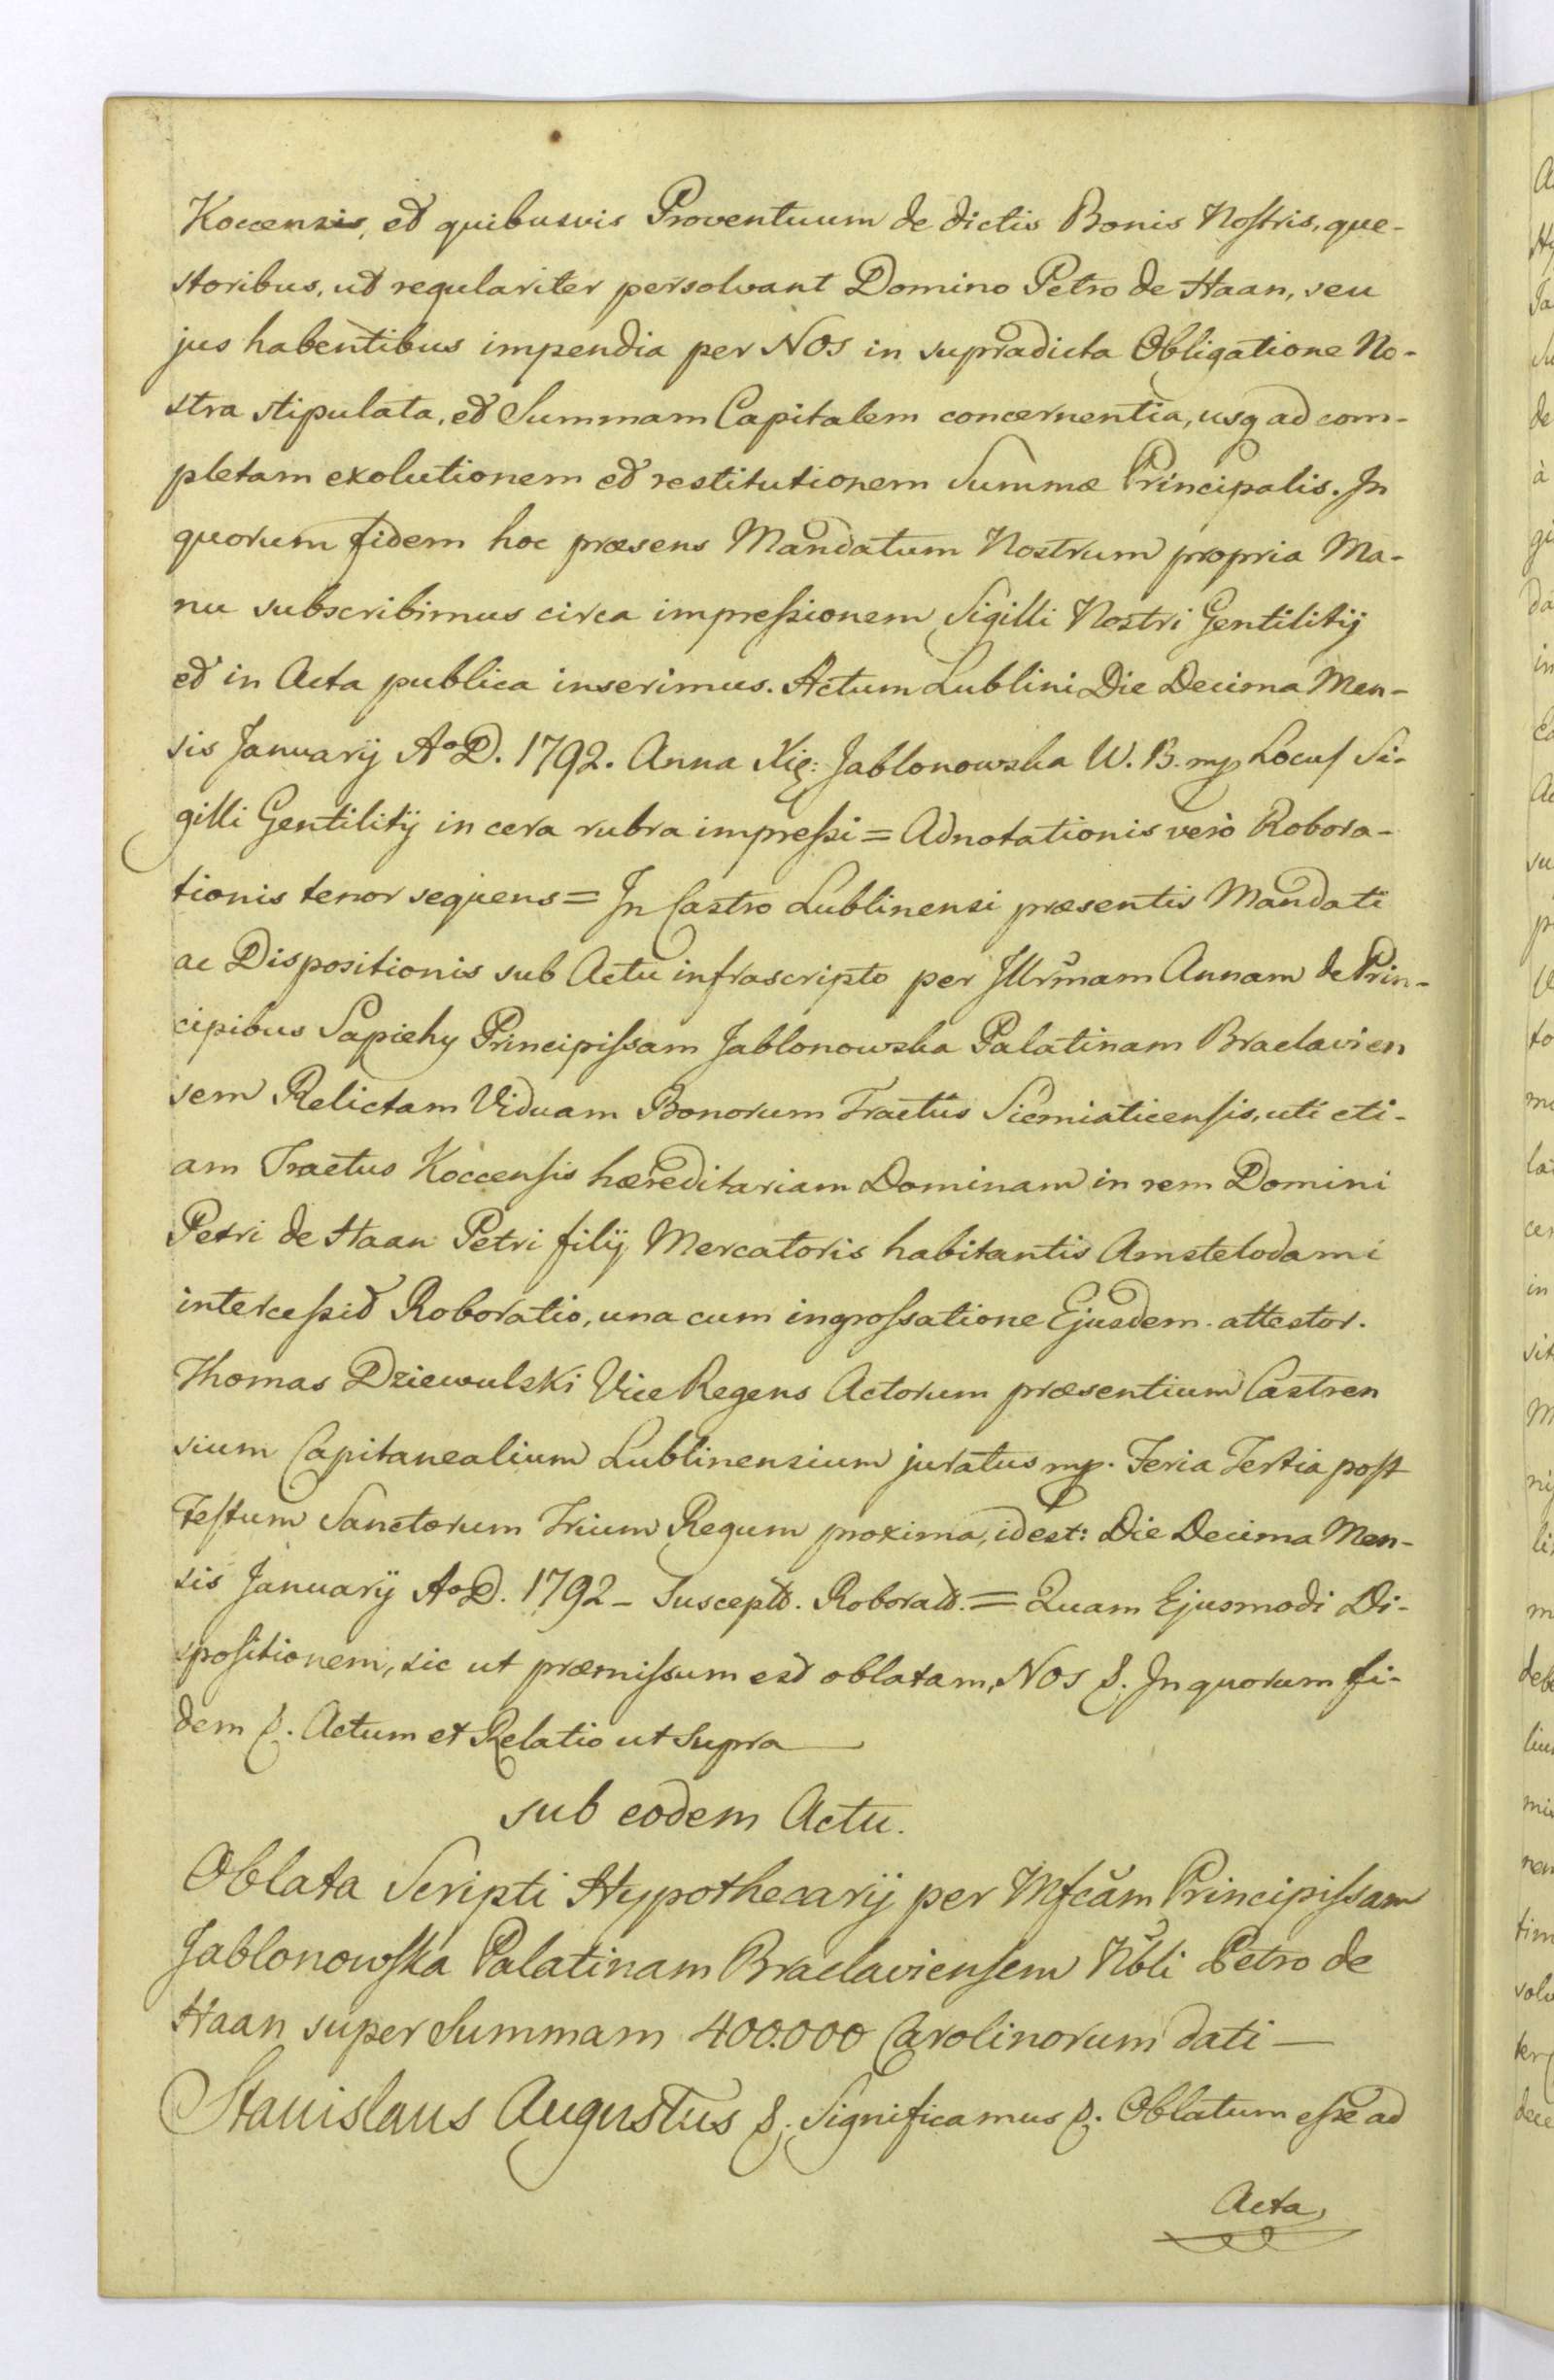 Koccensis, et quibusvis Proventuum de dictis Bonis Nostris, que-
storibus, ut regulariter persolvant Domino Petro de Haan, seu
jus habentibus impendia per NOS in supradicta Obligatione No-
stra stipulata, et Summam Capitalem concernentia, usq ad com-
pletam exolutionem et restitutionem Summæ Principalis. In
quorum fidem hoc præsens Mandatum Nostrum propria Ma-
nu subscribimus circa impressionem Sigilli Nostri Gentilitij
et in Acta publica inserimus. Actum Lublini Die Decima Men-
sis Januarij AoD. 1792. Anna Xię: Jablonowska W. B. mp Locus Si-
gilli Gentilitij in cera rubra impressi = Adnotationis verò Robora-
tionis tenor sequens = In Castro Lublinensi præsentis Mandati
ac Dispositionis sub Actu infrascripto per Illrmam Annam de Prin-
cipibus Sapiehy Principissam Jablonowska Palatinam Braclavien
sem Relictam Viduam Bonorum Tractûs Siemiaticensis, uti eti-
am Tractus Koccensis hæreditariam Dominam in rem Domini
Petri de Haan Petri filij Mercatoris habitantis Amstelodami
intercessit Roboratio, una cum ingrossatione Ejusdem attestor.
Thomas Dziewulski Vice Regens Actorum præsentium Castren
sium Capitanealium Lublinensium juratus mp. Feria Tertia post
Festum Sanctorum Trium Regum proxima, idest: Die Decima Men-
sis Januarij AoD. 1792 - Suscept. Roborat. = Quam Ejusmodi Di-
spositionem, sic ut præmissum est oblatam, NOS &. In quorum fi-
dem &. Actum et Relatio ut Supra
sub eodem Actu.
Oblata Scripti Hypothecarij per Mfcam Principissam
Jablonowska Palatinam Braclaviensem Nbli Petro de
Haan super Summam 400.000 Carolinorum dati —
Stanislaus Augustus &. Significamus &. Oblatum esse ad
Acta,